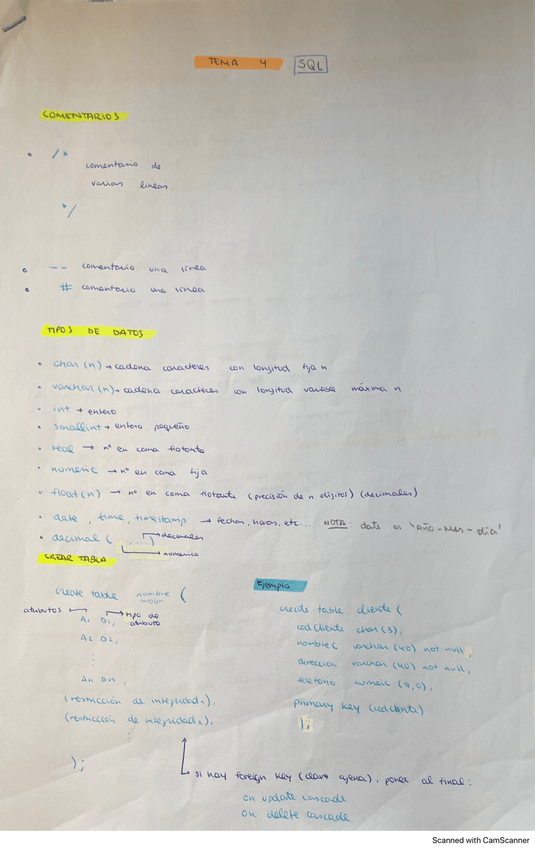 TEMA 4 SQL
COMENTARIOS
• /*
comentario de
varias lineas
*/
• -- comentario una línea
• # comentario una línea
TIPOS DE DATOS
• char(n) → cadena caracteres con longitud fija n
• varchar(n) → cadena caracteres con longitud variable máxima n
• int → entero
• smallint → entero pequeño
• real → nº en coma flotante
• numeric → nº en coma fija
• float(n) → nº en coma flotante (precisión de n dígitos) (decimales)
• date, time, timestamp → fechas, horas, etc... NOTA: date es "Año-Mes-día"
• decimal (..,..) → decimales
→ numérico
CREAR TABLA
create table nombre (
atributos ← A1 D1, → tipo de atributo
A2 D2,
⋮
An Dn,
(restricción de integridad1),
(restricción de integridad2),
⋮
);
Ejemplo
create table cliente (
codCliente char(3),
nombre( varchar (40) not null,
direccion varchar (40) not null,
telefono numeric (9,0),
primary key (codcliente)
);
→ si hay foreign key (clave ajena), poner al final:
on update cascade
on delete cascade
Scanned with CamScanner